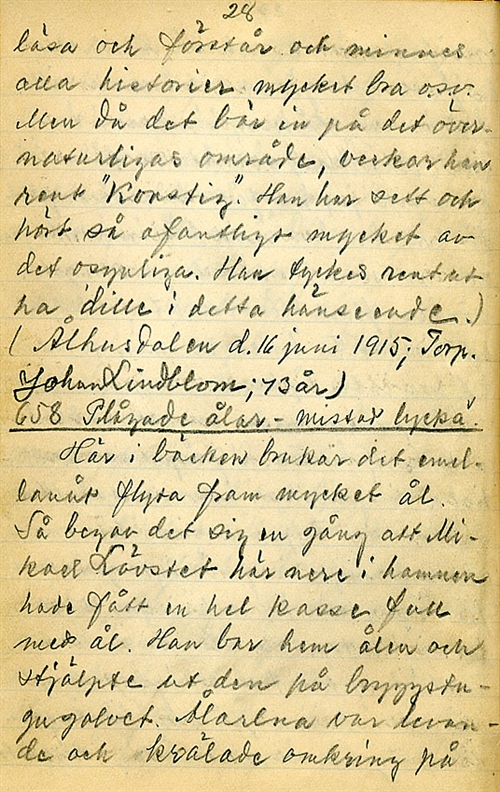 28
läsa och förstår och minnes
alla historier mycket bra o.s.v.
Men då det bär in på det över-
naturligas område, verkar han
rent "Konstig". Han har sett och
hört så ofantligt mycket av
det osynliga. Han tyckes rent ut
ha dille i detta hänseende.)
(Ålhusdalen d. 16 juni 1915; Torp.
Johan Lindblom; 73 år)
658 Plågade ålar - mistad lycka.
Här i bäcken brukar det emel-
lanåt flyta fram mycket ål.
Så begav det sig en gång att Mi-
kael Lövstet här nere i hamnen
hade fått en hel kasse full
med ål. Han bar hem ålen och
stjälpte ut den på bryggstu-
gugolvet. Ålarna var levan-
de och krälade omkring på